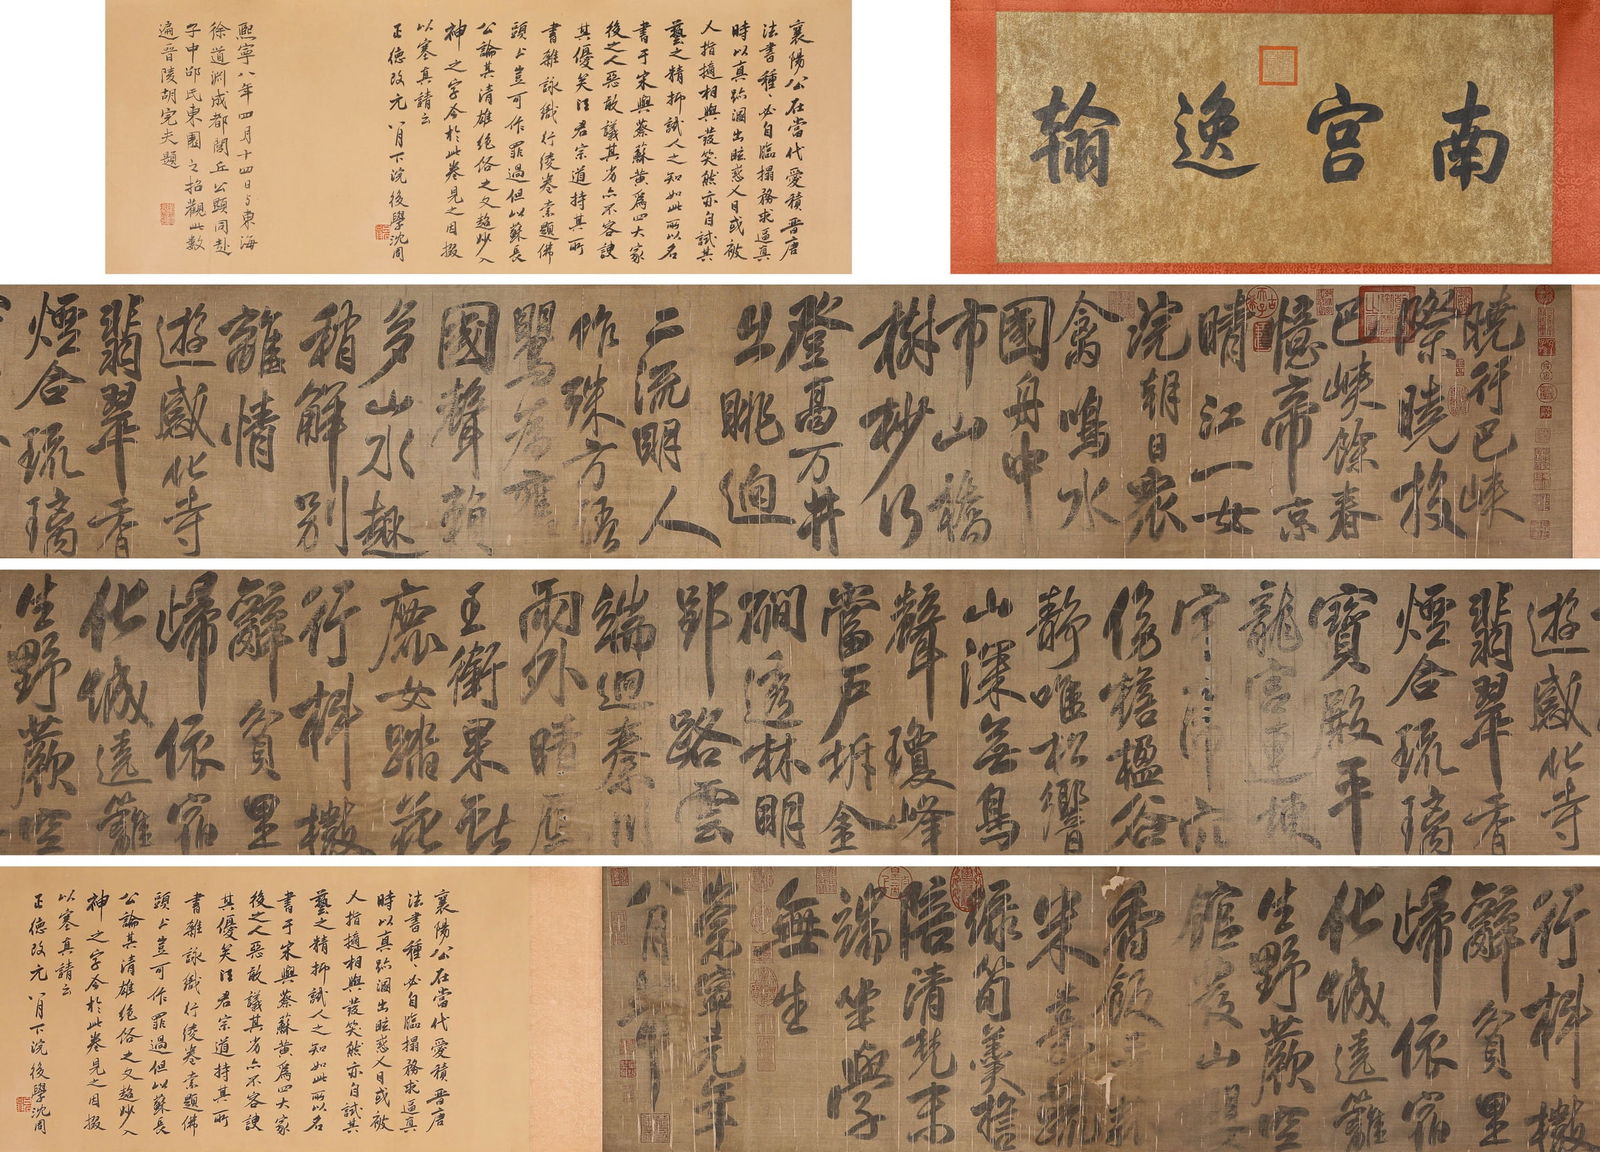 南宮逸翰
襄陽公在當代愛積晋唐
法書種〻必自臨搨務求逼真
時以真跡溷出眩惑人目或被
人指摘相與發笑然亦自試其
藝之精抑試人之知如此所以名
書于宋與蔡蘇黃爲四大家
後之人惡敢議其劣亦不容諛
其優矣汪君宗道持其所
書雜詠織行綾卷索題佛
頭上豈可作罪過但以蘇長
公論其清雄絕俗之文超妙入
神之字今於此卷見之因掇
以塞真請云
正德改元八月下浣後學沈周
熙寧八年四月十四日与東海
徐道淵成都閭丘公顯同赴
子中邵氏東園之招觀此數
遍晉陵胡完夫題
曉行巴峽
際曉投
巴峽餘春
憶帝京
晴江一女
浣朝日衆
禽鳴水
國舟中
市山橋
樹杪行
登高万井
出眺迥
二流明人
作殊方語
鶯為舊
國聲賴
多山水趣
稍解別
離情
遊感化寺
翡翠香
煙合琉璃
遊感化寺
翡翠香
煙合琉璃
寶殿平
龍宮連棟
宇穴
傍簷楹谷
靜唯松響
山深無鳥
聲瓊峰
當戶拆金
澗透林明
郢路雲
端迴秦川
雨外晴雁
王銜果獻
鹿女踏花
行抖擻
辭貧里
歸依宿
化城遶籬
生野蕨空
行抖擻
辭貧里
歸依宿
化城遶籬
生野蕨空
館發山櫻
香飯青菰
米嘉蔬
綠筍羹
陪清梵末
端坐學
無生
崇寧元年
八月
襄陽公在當代愛積晋唐
法書種〻必自臨搨務求逼真
時以真跡溷出眩惑人目或被
人指摘相與發笑然亦自試其
藝之精抑試人之知如此所以名
書于宋與蔡蘇黃爲四大家
後之人惡敢議其劣亦不容諛
其優矣汪君宗道持其所
書雜詠織行綾卷索題佛
頭上豈可作罪過但以蘇長
公論其清雄絕俗之文超妙入
神之字今於此卷見之因掇
以塞真請云
正德改元八月下浣後學沈周